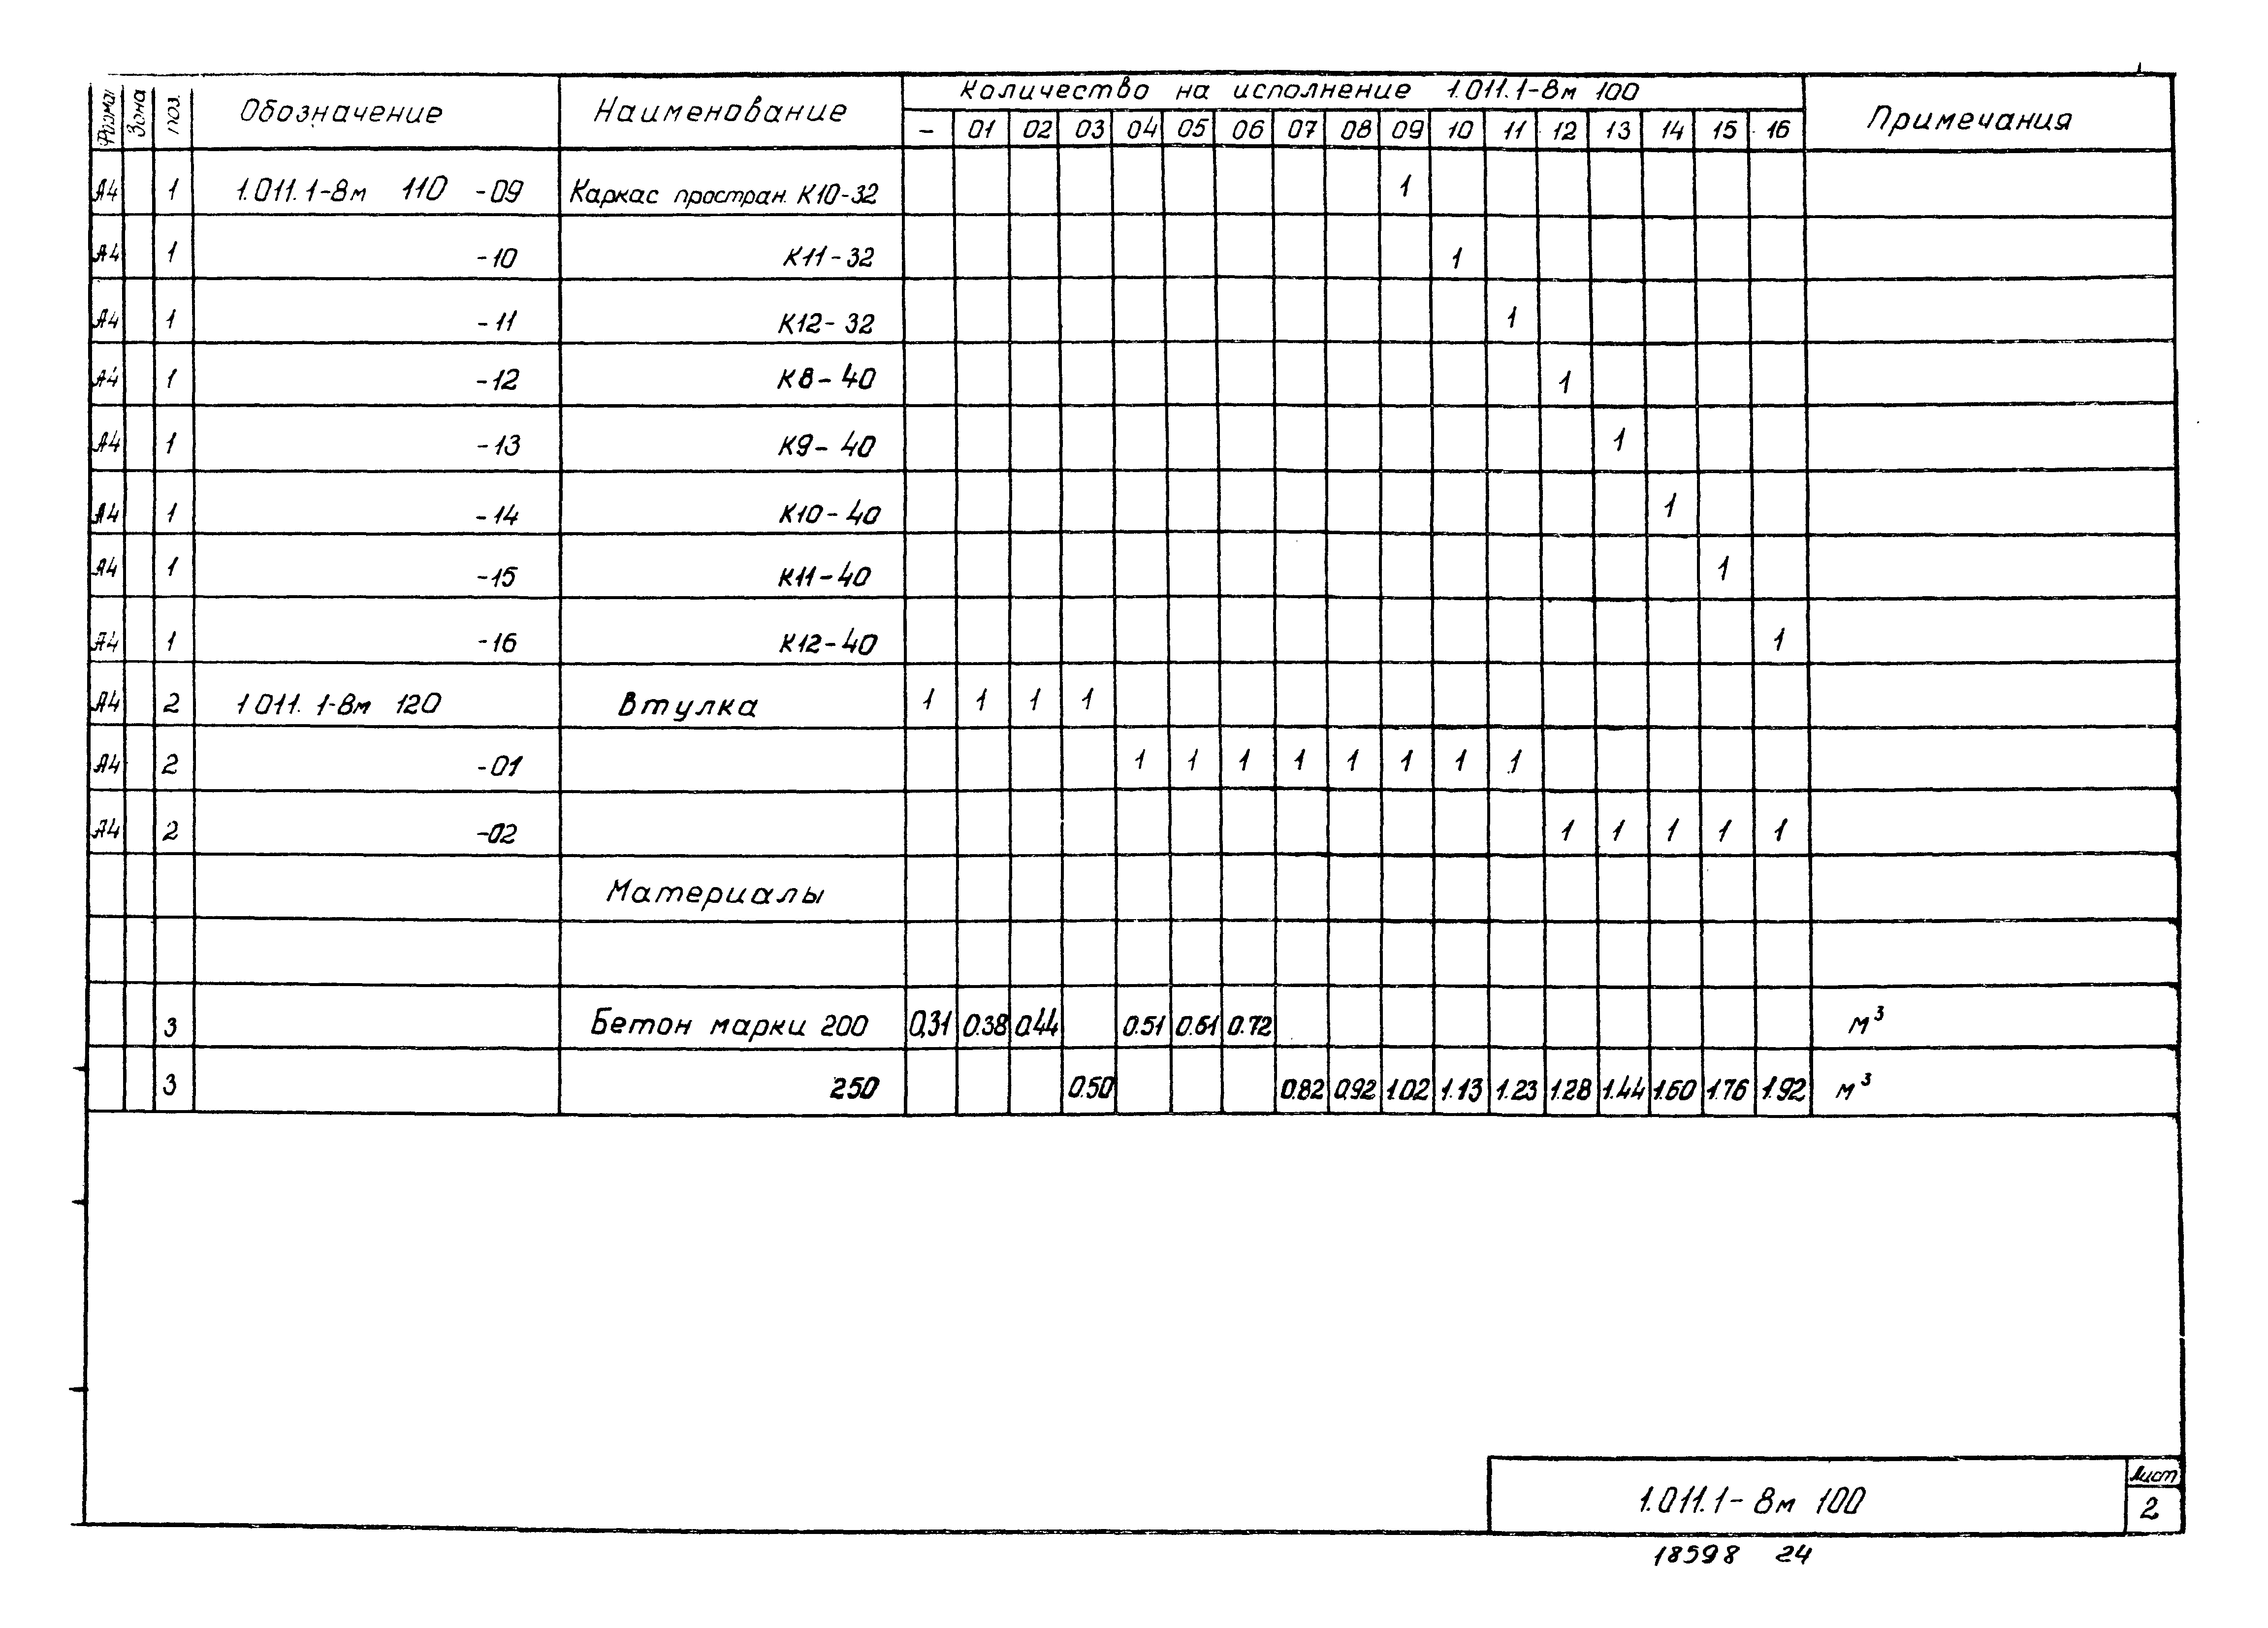 Формат Зона поз. Обозначение Наименование Количество на исполнение 1.011.1-8м 100 Примечания
- 01 02 03 04 05 06 07 08 09 10 11 12 13 14 15 16
А4 1 1.011.1-8м 110 -09 Каркас простран. К10-32 1
А4 1 -10 К11-32 1
А4 1 -11 К12-32 1
А4 1 -12 К8-40 1
А4 1 -13 К9-40 1
А4 1 -14 К10-40 1
А4 1 -15 К11-40 1
А4 1 -16 К12-40 1
А4 2 1 011. 1-8м 120 Втулка 1 1 1 1
А4 2 -01 1 1 1 1 1 1 1 1
А4 2 -02 1 1 1 1 1
Материалы
3 Бетон марки 200 0,31 0.38 0.44 0.51 0.61 0.72 м³
3 250 0.50 0.82 0.92 1.02 1.13 1.23 1.28 1.44 1.60 1.76 1.92 м³
1.011.1-8м 100
Лист
2
18598 24